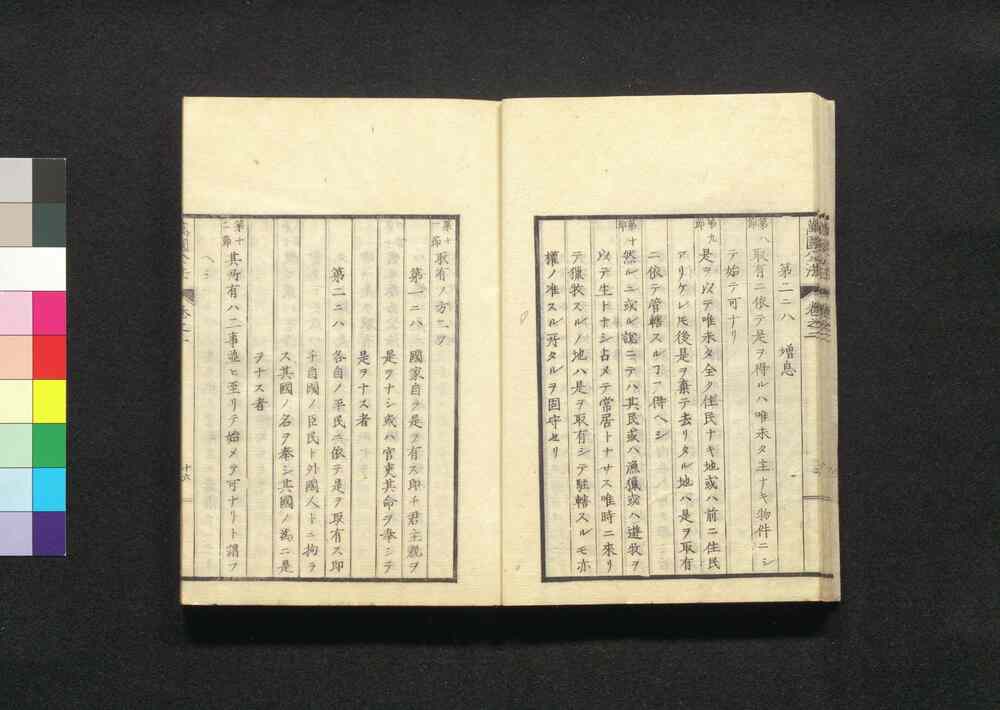 萬國公法 卷之二
第二ニハ 増息
第八節 取有ニ依テ是ヲ得ルハ唯未タ主ナキ物件ニシ
テ始テ可ナリ
第九節 是ヲ以テ唯未タ全ク住民ナキ地或ハ前ニ住民
アリケレ𪜈後是ヲ棄テ去リタル地ハ是ヲ取有
ニ依テ管轄スルヿヲ得ヘシ
第十節 然ルニ或ル説ニテハ其民或ハ漁獵或ハ遊牧ヲ
以テ生トナシ占メテ常居トナサス唯時ニ來リ
テ獵牧スルノ地ハ是ヲ取有シテ駐轄スルモ亦
權ノ准スル所タルヲ固守セリ
第十一節 取有ノ方二ツ
第一ニハ 國家自ラ是ヲ有ス即チ君主親ヲ
是ヲナシ或ハ官吏其命ヲ奉シテ
是ヲナス者
第二ニハ 各自ノ平民ニ依テ是ヲ取有ス即
チ自國ノ臣民ト外國人トニ拘ラ
ス其國ノ名ヲ奉シ其國ノ為ニ是
ヲナス者
第十二節 其所有ハ二事並ヒ至リテ始メテ可ナリト謂フ
ヘシ
十六